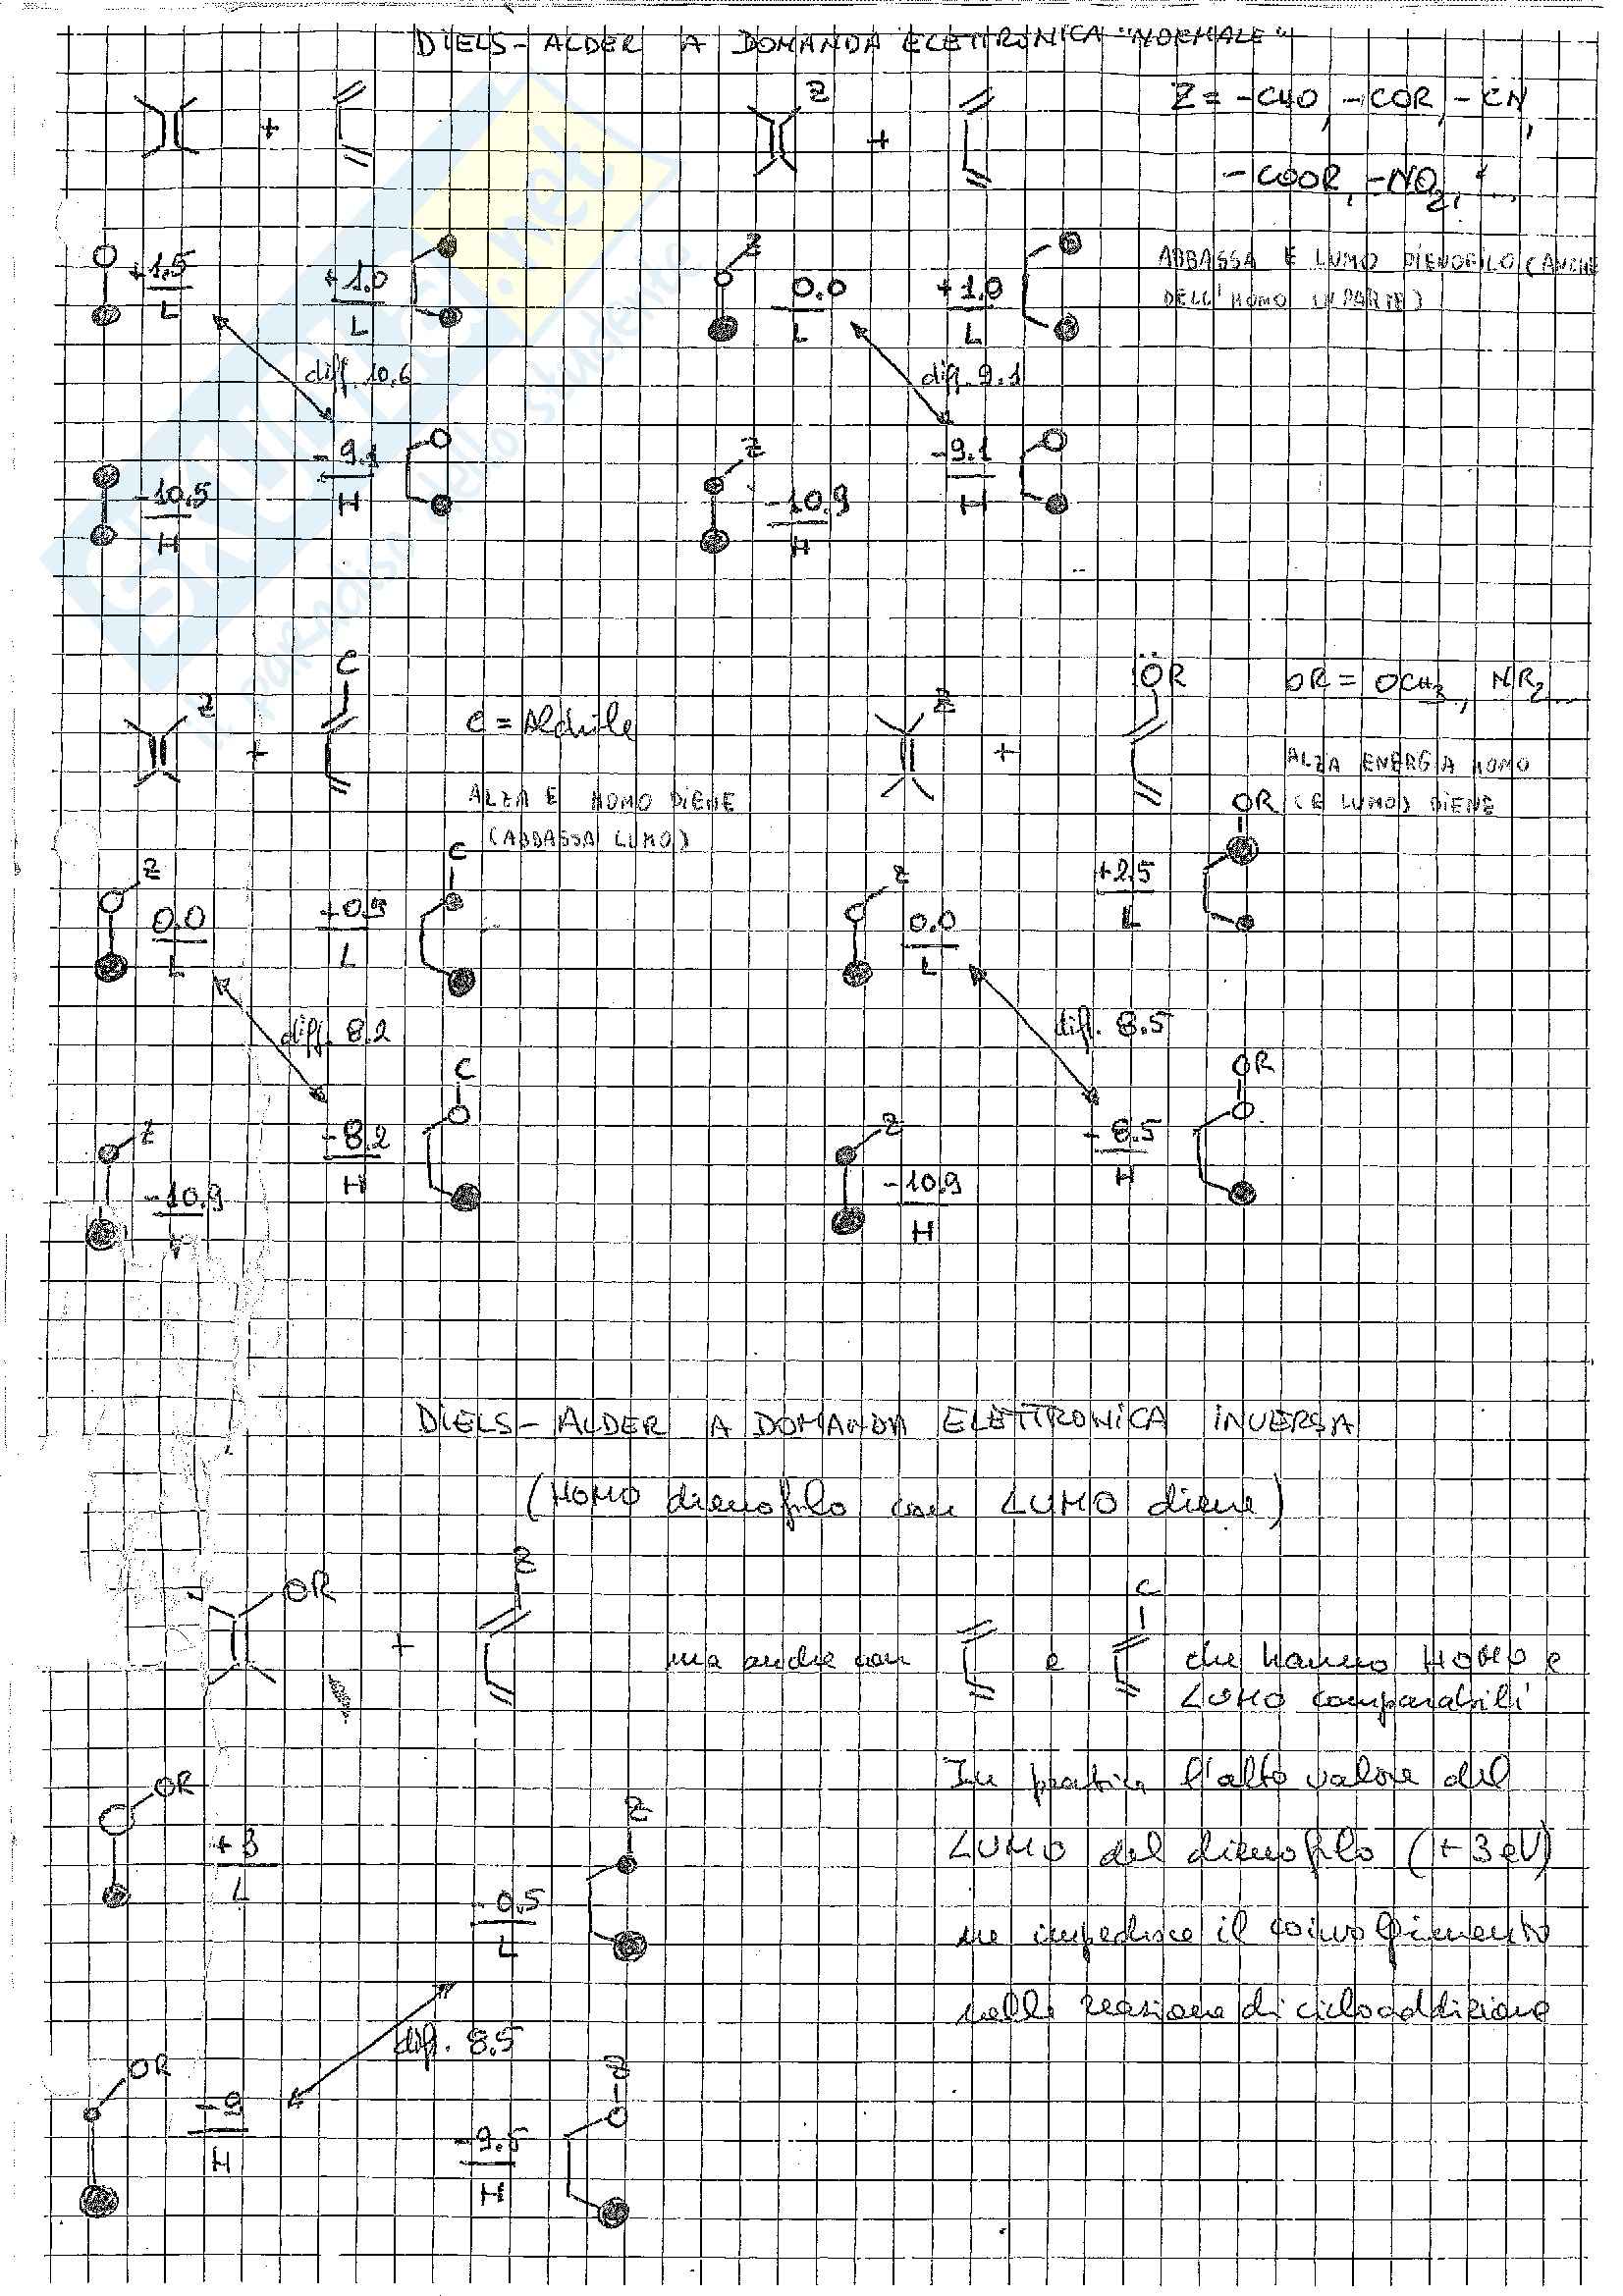 DIELS-ALDER A DOMANDA ELETTRONICA "NORMALE"
Z
+
+
Z = -CHO, -COR, -CN,
-COOR, -NO2, ...
+1.5
L
+1.0
L
Z
0.0
L
+1.0
L
ABBASSA E LUMO DIENOFILO (ANCHE
DELL'HOMO IN PARTE)
diff. 10.6
diff. 9.1
-10.5
H
-9.1
H
Z
-10.9
H
-9.1
H
Z
+
C
C = Alchile
ALZA E HOMO DIENE
(ABBASSA LUMO)
Z
+
ÖR
OR = OCH3, NR2...
ALZA ENERGIA HOMO
(E LUMO) DIENE
Z
0.0
L
+0.9
L
C
Z
0.0
L
+2.5
L
OR
diff. 8.2
diff. 8.5
Z
-10.9
-8.2
H
C
Z
-10.9
H
-8.5
H
OR
DIELS-ALDER A DOMANDA ELETTRONICA INVERSA
(HOMO dienofilo con LUMO diene)
OR
+
Z
ma anche con
e
C
che hanno HOMO e
LUMO comparabili
OR
+3
L
-0.5
L
Z
In pratica l'alto valore del
LUMO del dienofilo (+3 eV)
ne impedisce il coinvolgimento
nella reazione di cicloaddizione
diff. 8.5
OR
-9
H
-9.5
H
Z